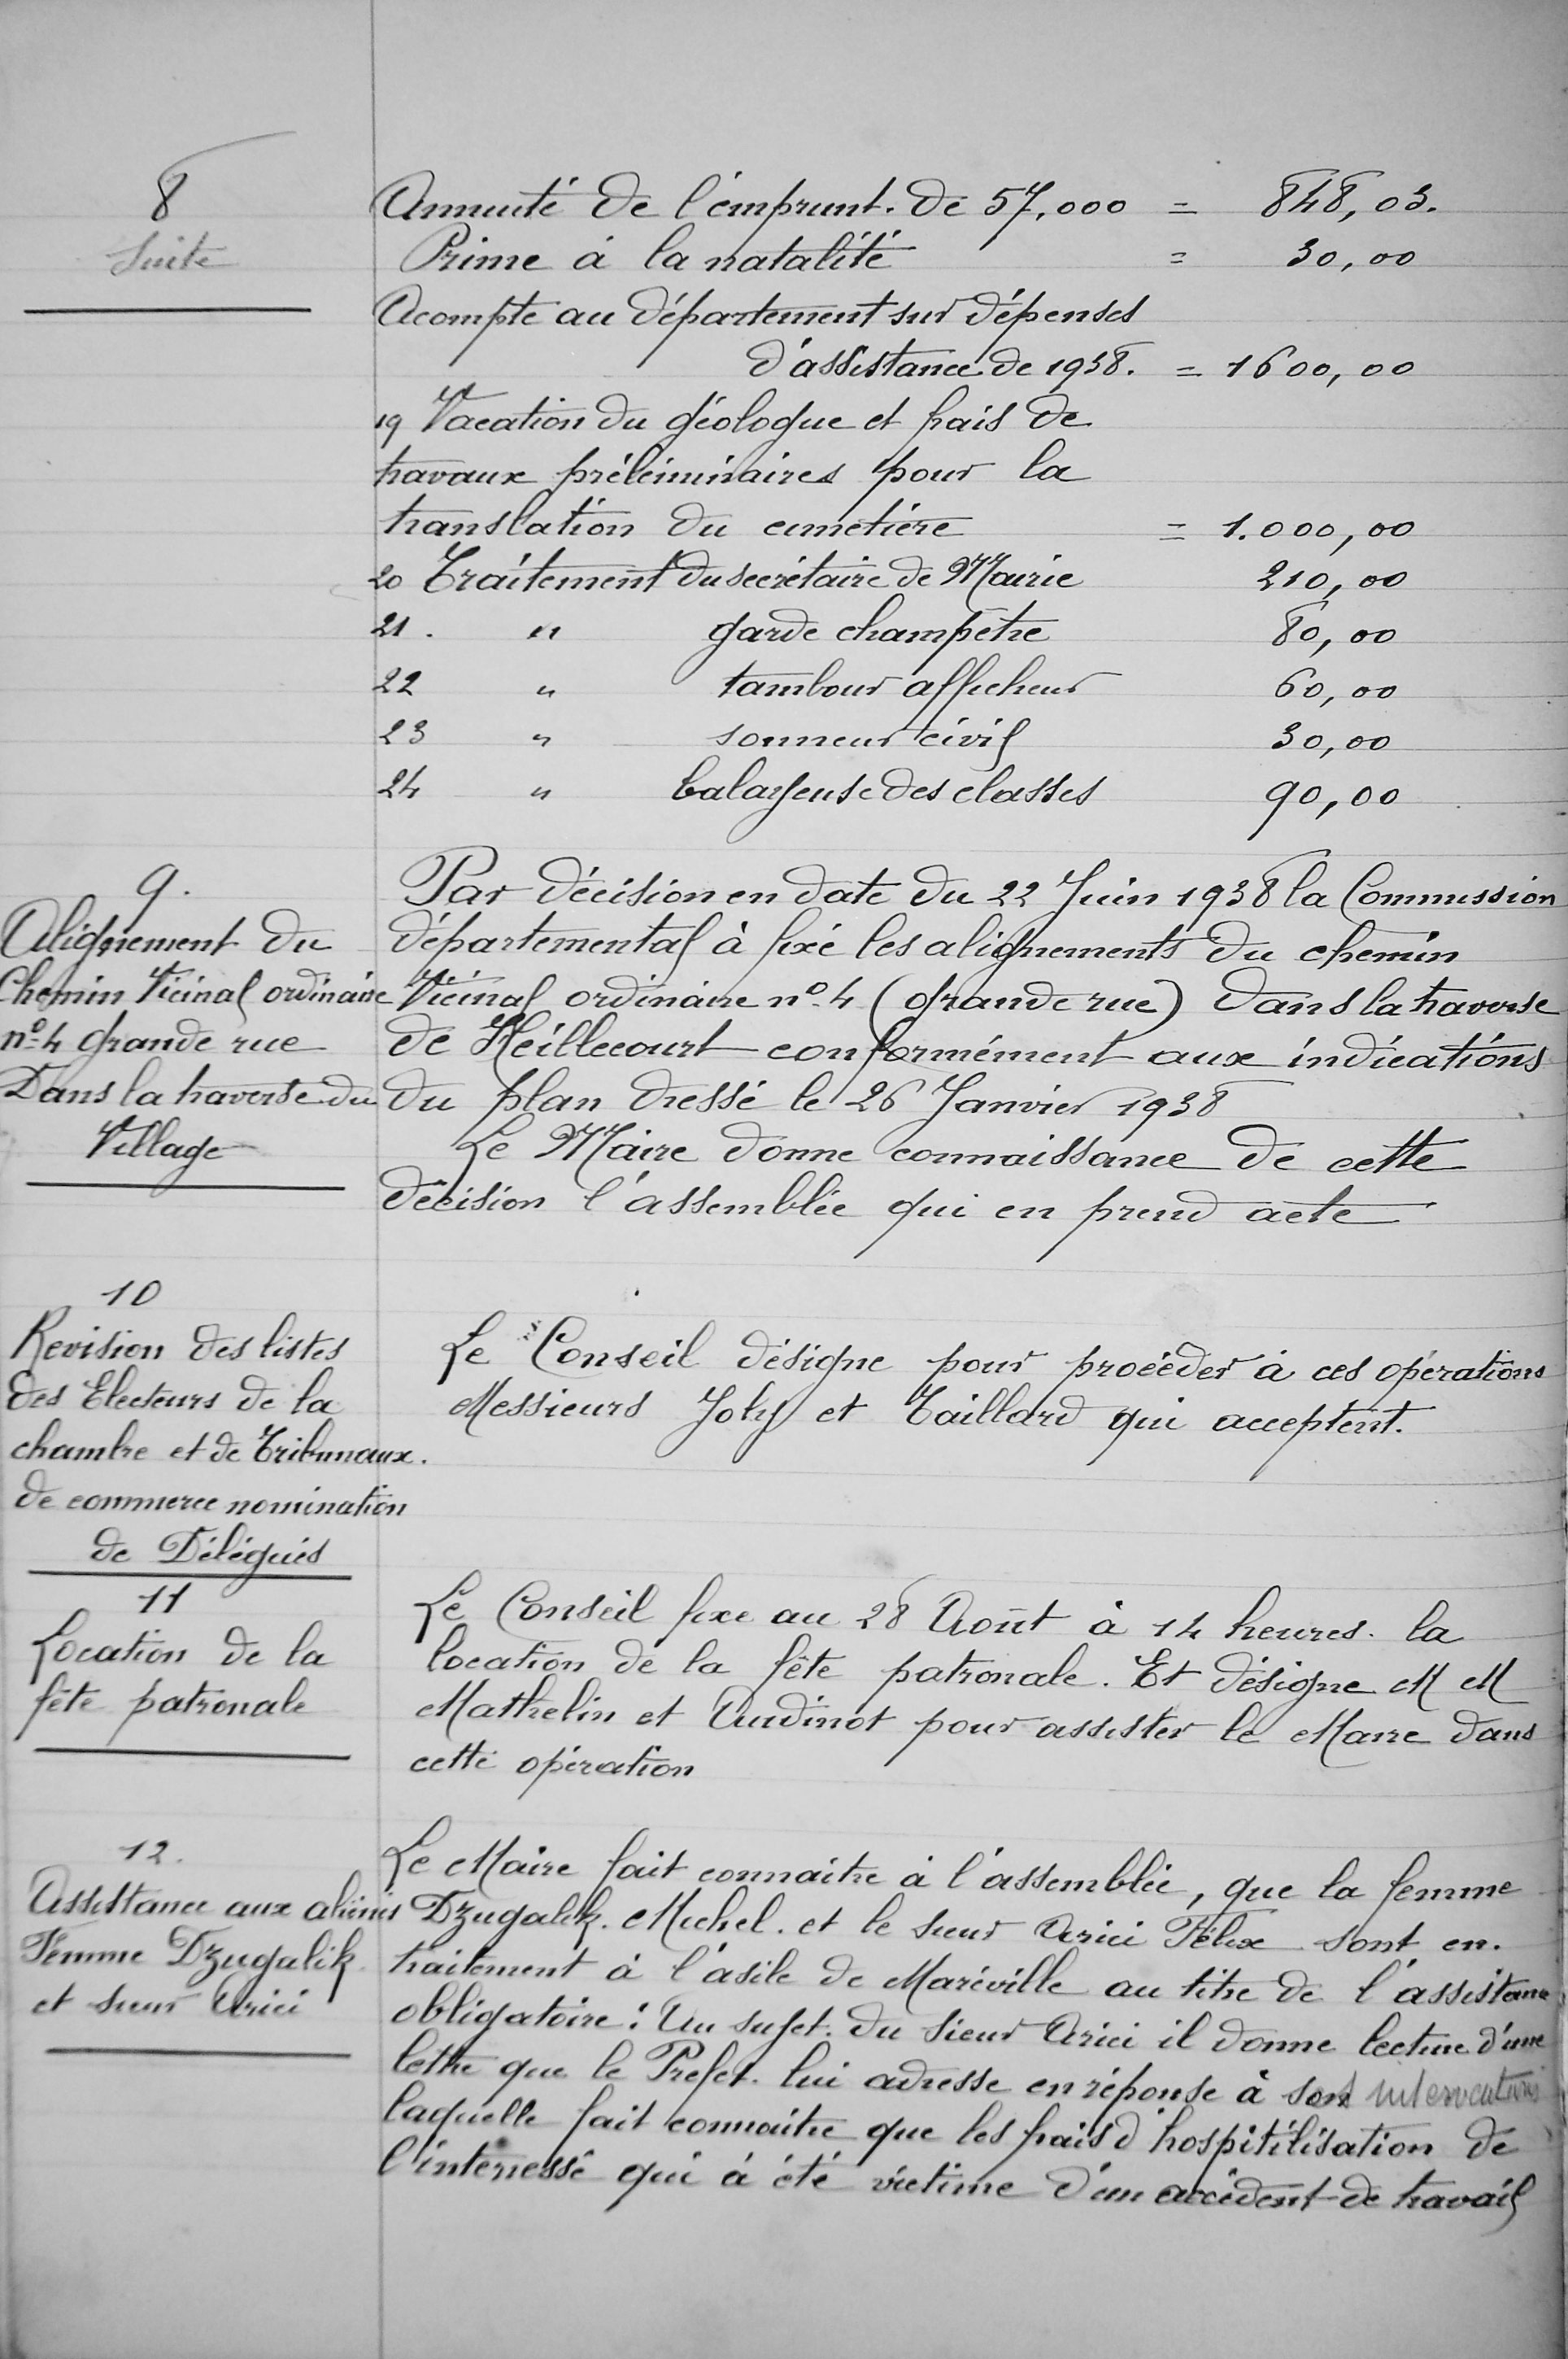 8
Suite
Annuité de l'emprunt. de 57.000 = 848,03.
Prime à la natalité = 30,00
Acompte au département sur dépenses
d'assistance de 1938. = 1600,00
19 Vacation du géologue et frais de
travaux préléiminaires pour la
translation du cimetière = 1.000,00
20 Traitement du secrétaire de Mairie 210,00
21. " garde champêtre 80,00
22 " tambour afficheur 60,00
23 " sonneur civil 30,00
24 " balayeuse des classes 90,00
9.
Alignement du
Chemin Vicinal ordinaire
nº 4 grande rue
Dans la traverse du
Village
Par décision en date du 22 Juin 1938 la Commission
départemental à fixé les alignements du chemin
Vicinal ordinaire nº 4 (grande rue) dans la traverse
de Heillecourt conformément aux indications
du plan dressé le 26 Janvier 1938
Le Maire donne connaissance de cette
décision l'assemblée qui en prend acte
10
Revision des listes
des Electeurs de la
chambre et de Tribunaux.
de commerce nomination
de Délégués
Le Conseil désigne pour procéder à ces opérations
Messieurs Joly et Taillard qui acceptent.
11
Location de la
fête patronale
Le Conseil fixe au 28 Août à 14 heures. la
location de la fête patronale. Et désigne M M
Mathelin et Audinot pour assister le Maire dans
cette opération
12.
Assistance aux aliénés
Femme Dzugalik
et sieur Arici
Le Maire fait connaitre à l'assemblée, que la femme
Dzugalik. Michel. et le sieur Arici Félix sont en.
traitement à l'asile de Maréville au titre de l'assistance
obligatoire: Au sujet. du sieur Arici il donne lecture d'une
lettre que le Prefet. lui adresse en réponse à son
laquelle fait connaitre que les frais d'hospitilisation de
l'interessé qui à été victime d'un accident de travail